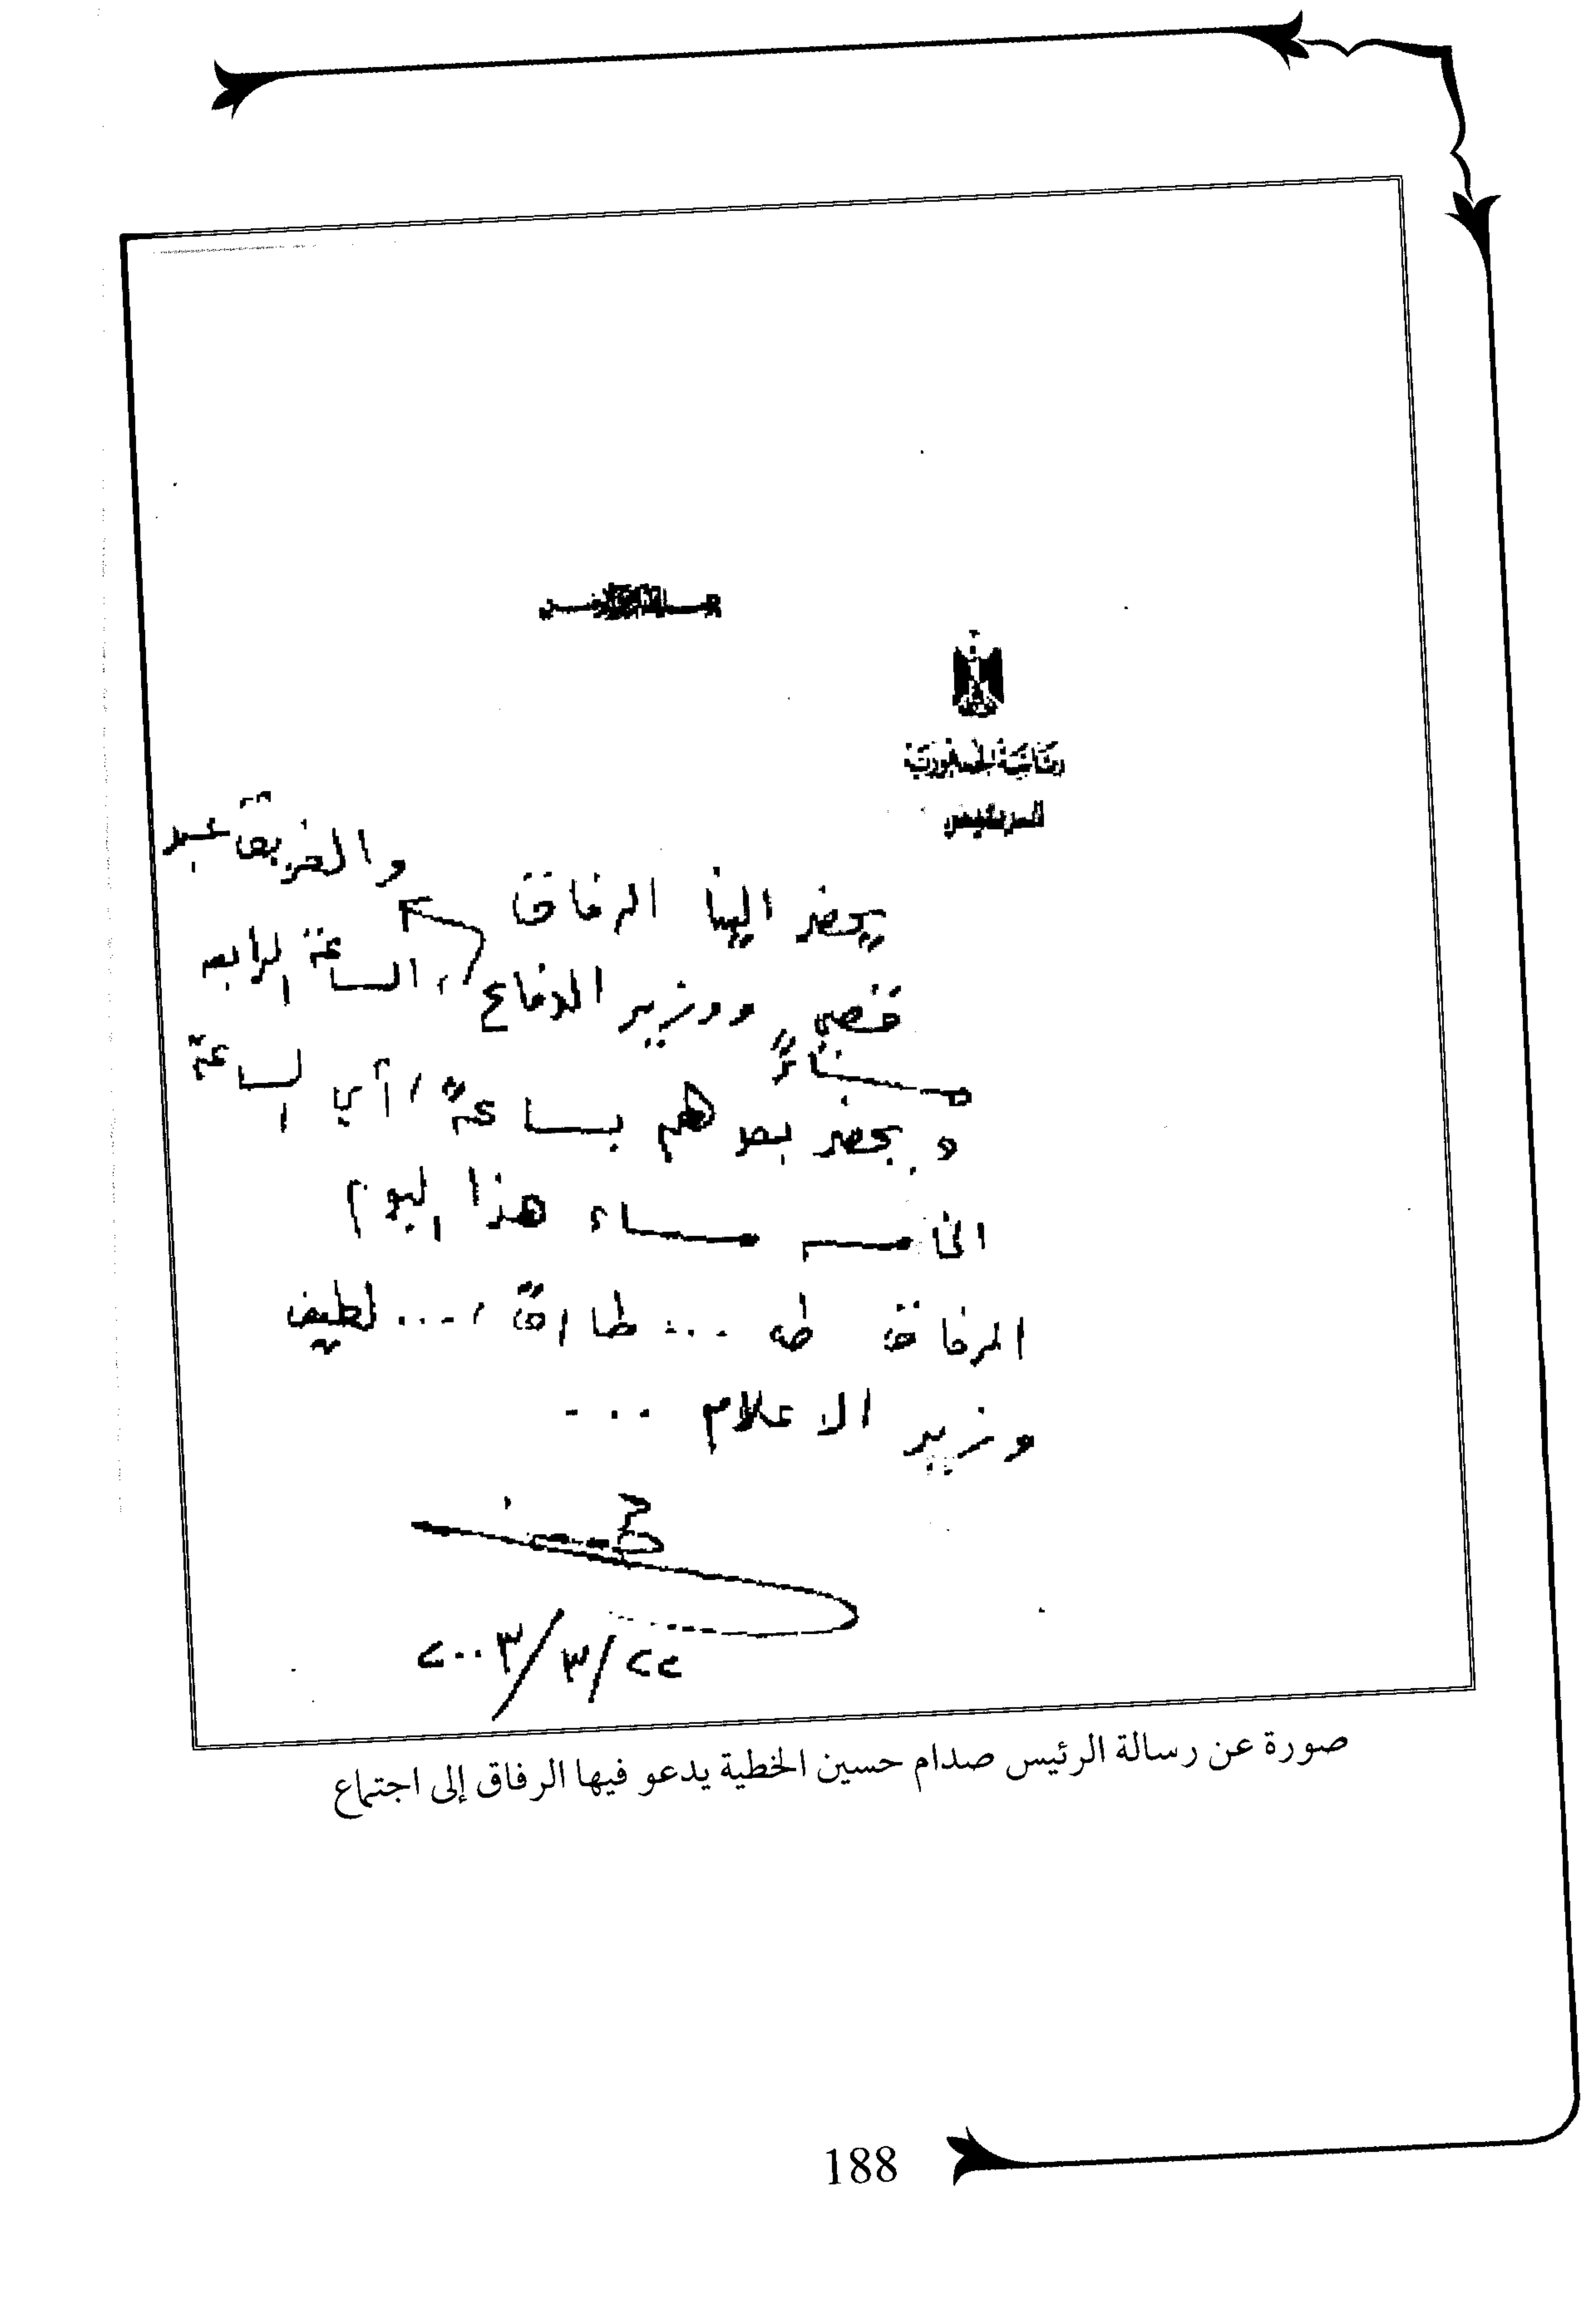 بسم الله الرحمن الرحيم
رئاسة الجمهورية
الرئيس
والفريق عبد
يحضر الينا الرفاق
قصي ووزير الدفاع، الساعة الرابعه
مساءً
ويحضر بعدهم بساعة، أي الساعة
الخامسه مساء هذا اليوم
الرفاق طه ... طارق، ... لطيف
وزير الاعلام ...
٢٢/٣/٢٠٠٣
صورة عن رسالة الرئيس صدام حسين الخطية يدعو فيها الرفاق إلى اجتماع
188